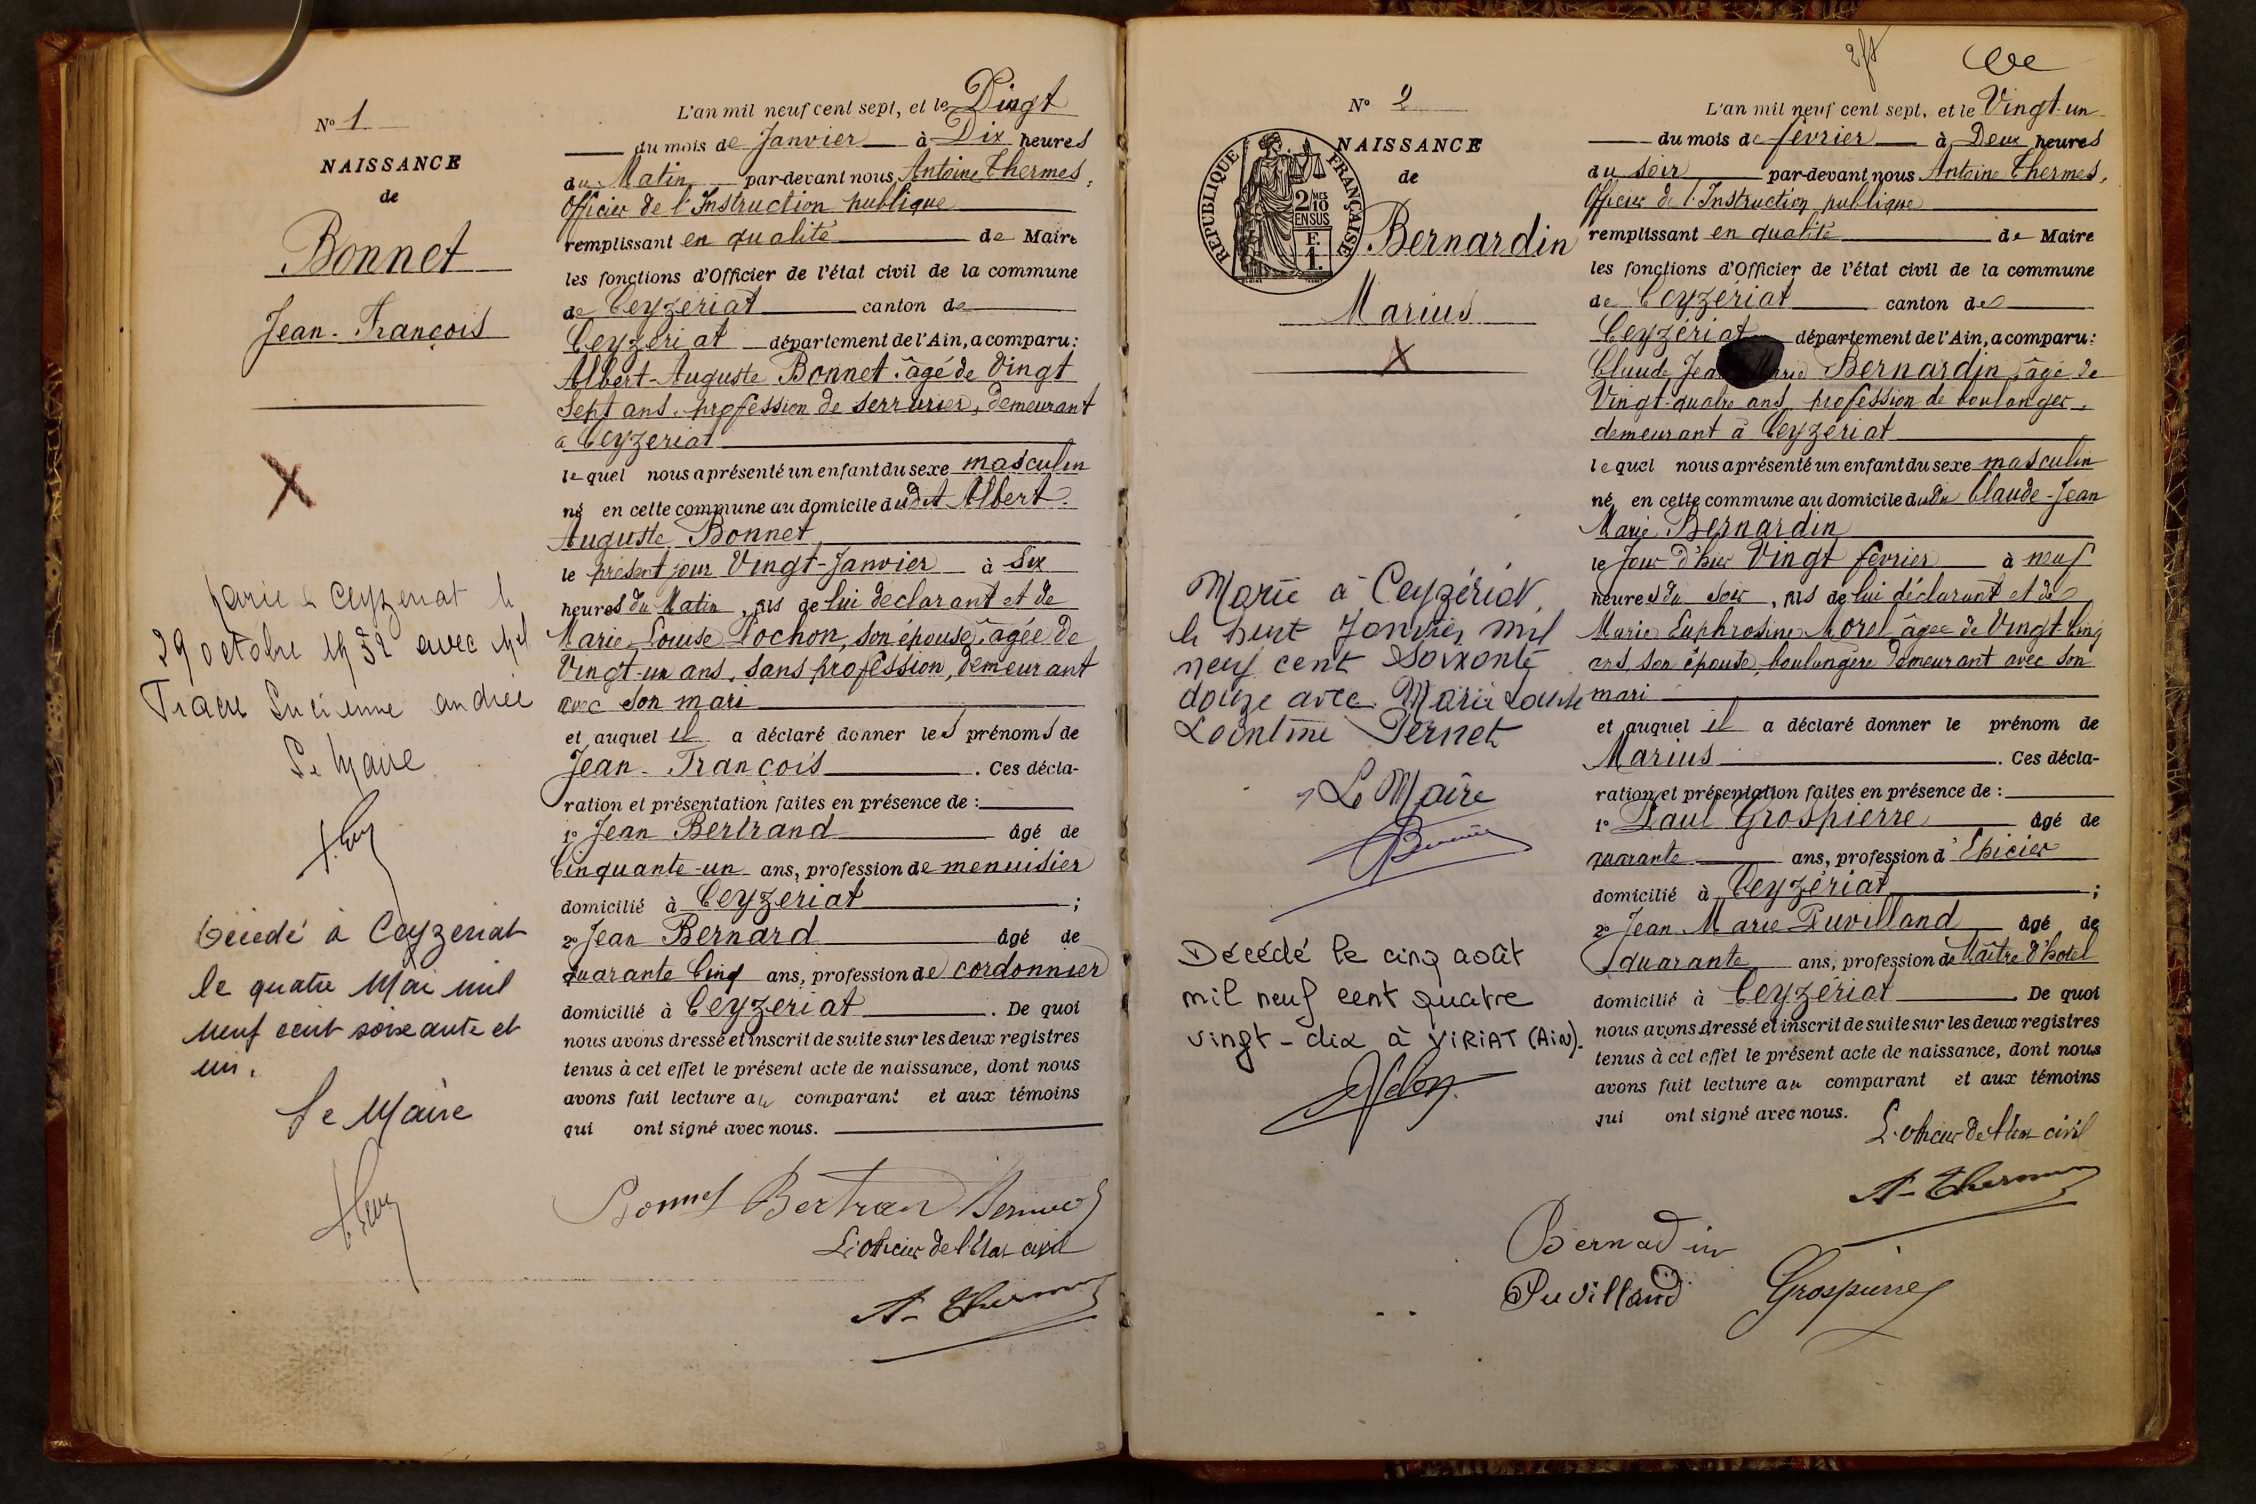 N° 1
NAISSANCE
de
Bonnet
Jean-François
Marié à Ceyzeriat le
29 octobre 1932 avec Mel
Lucienne andrée
Le Maire
Décédé à Ceyzeriat
le quatre Mai mil
neuf cent soixante et
un.
Le Maire
L'an mil neuf cent sept, et le Vingt
du mois de Janvier à Dix heures
du Matin par-devant nous Antoine Thermes,
Officier de l'Instruction publique
remplissant en qualité de Maire
les fonctions d'Officier de l'état civil de la commune
de Ceyzériat canton de
Ceyzériat département de l'Ain, a comparu:
Albert-Auguste Bonnet, âgé de Vingt
Sept ans, profession de serrurier, demeurant
à Ceyzériat
lequel nous a présenté un enfant du sexe masculin
né en cette commune au domicile dudit Albert-
Auguste Bonnet
le présent jour Vingt-Janvier à Six
heures du Matin, fils de lui déclarant et de
Marie-Louise Lochon, son épouse, âgée de
Vingt-un ans, sans profession, demeurant
avec son mari
et auquel il a déclaré donner les prénoms de
Jean-François. Ces décla-
ration et présentation faites en présence de :
1° Jean Bertrand âgé de
Cinquante-un ans, profession de menuisier
domicilié à Ceyzeriat ;
2° Jean Bernard âgé de
quarante Cinq ans, profession de cordonnier
domicilié à Ceyzeriat. De quoi
nous avons dressé et inscrit de suite sur les deux registres
tenus à cet effet le présent acte de naissance, dont nous
avons fait lecture au comparant et aux témoins
qui ont signé avec nous.
Bonnet Bertrand Bernard
L'officier de l'état civil
A. Thermes
N° 2
NAISSANCE
de
REPUBLIQUE FRANÇAISE
2/10 MES
EN SUS
F.
1.
Bernardin
Marius
Marié à Ceyzériat,
le huit Janvier mil
neuf cent soixante
douze avec Marie Louise
Léontine Pernet
Le Maire
Décédé le cinq août
mil neuf cent quatre
vingt-dix à VIRIAT (Ain).
L'an mil neuf cent sept, et le Vingt-un
du mois de février à Deux heures
du soir par-devant nous Antoine Thermes,
Officier de l'Instruction publique
remplissant en qualité de Maire
les fonctions d'Officier de l'état civil de la commune
de Ceyzériat canton de
Ceyzériat département de l'Ain, a comparu:
Claude Jean Marie Bernardin, âgé de
Vingt-quatre ans, profession de boulanger,
demeurant à Ceyzériat
lequel nous a présenté un enfant du sexe masculin
né en cette commune au domicile dudit Claude-Jean
Marie Bernardin
le Jour d'hier Vingt février à neuf
heures du soir, fils de lui déclarant et de
Marie Euphrosine Morel âgée de Vingt Cinq
ans, son épouse, boulangère demeurant avec son
mari
et auquel il a déclaré donner le prénom de
Marius. Ces décla-
ration et présentation faites en présence de :
1° Paul Grospierre âgé de
quarante ans, profession d'Epicier
domicilié à Ceyzériat ;
2° Jean Marie Puvilland âgé de
quarante ans, profession de Maître d'hotel
domicilié à Ceyzériat. De quoi
nous avons dressé et inscrit de suite sur les deux registres
tenus à cet effet le présent acte de naissance, dont nous
avons fait lecture au comparant et aux témoins
qui ont signé avec nous.
L'officier de l'état civil
A. Thermes
Bernadin
Puvilland Grospierre